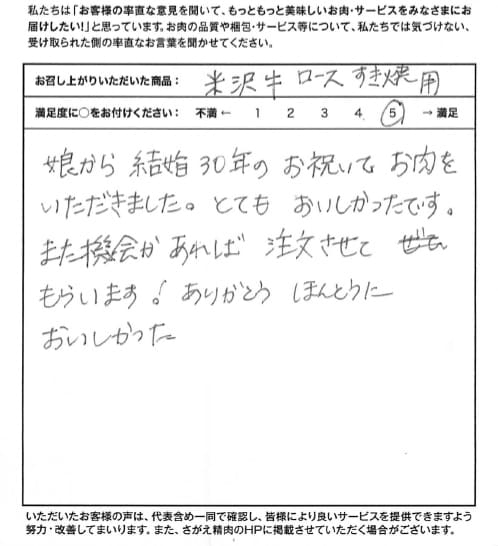 私たちは「お客様の率直な意見を聞いて、もっともっと美味しいお肉・サービスをみなさまにお
届けしたい!」と思っています。お肉の品質や梱包・サービス等について、私たちでは気づけない、
受け取られた側の率直なお言葉を聞かせてください。
お召し上がりいただいた商品： 米沢牛 ロース すき焼用
満足度に○をお付けください： 不満 ← 1 2 3 4 5 → 満足
娘から 結婚30年の お祝いで お肉を
いただきました。とても おいしかったです。
また機会が あれば 注文させて
もらいます! ありがとう ほんとうに
おいしかった
いただいたお客様の声は、代表含め一同で確認し、皆様により良いサービスを提供できますよう
努力・改善してまいります。また、さがえ精肉のHPに掲載させていただく場合がございます。